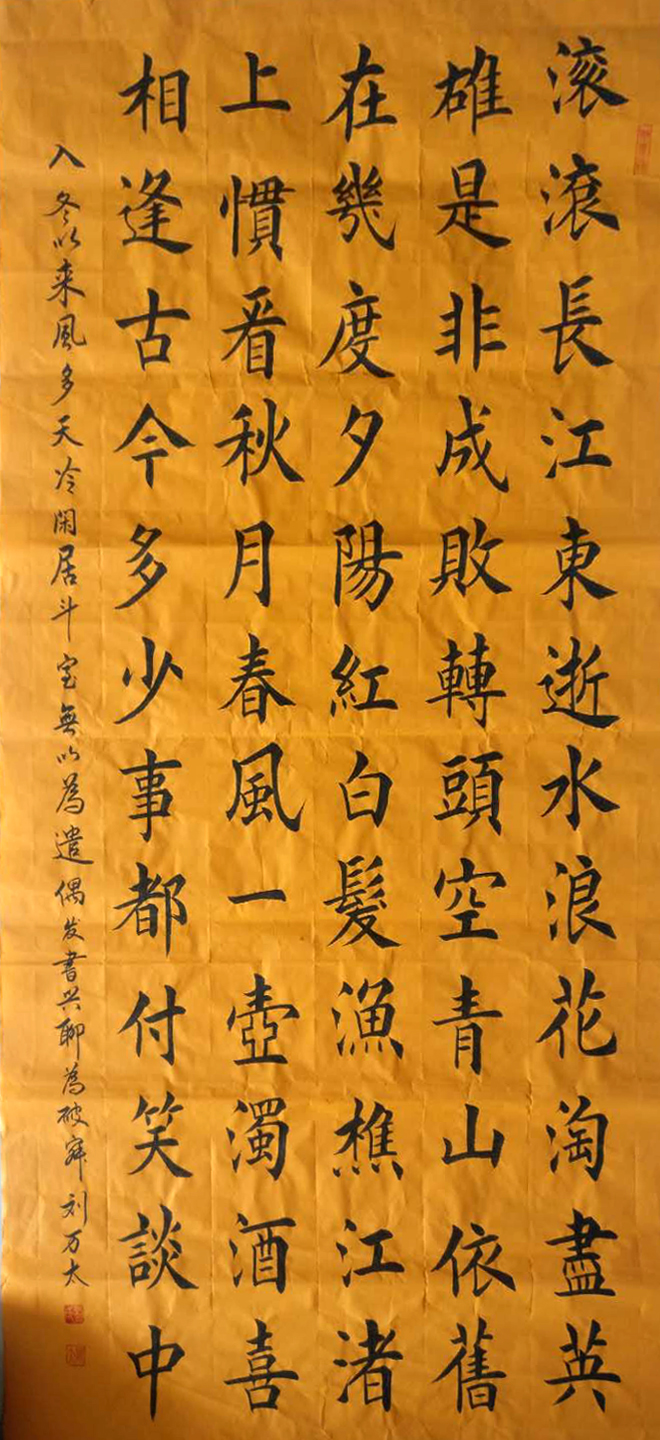 滚滚長江東逝水浪花淘盡英
雄是非成敗轉頭空青山依舊
在幾度夕陽紅白髮漁樵江渚
上慣看秋月春風一壺濁酒喜
相逢古今多少事都付笑談中
入冬以来風多天冷闲居斗室無以為遣偶发書兴聊為破寂刘万太